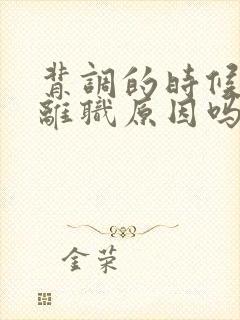 背調的時候
離職原因嗎
金荣